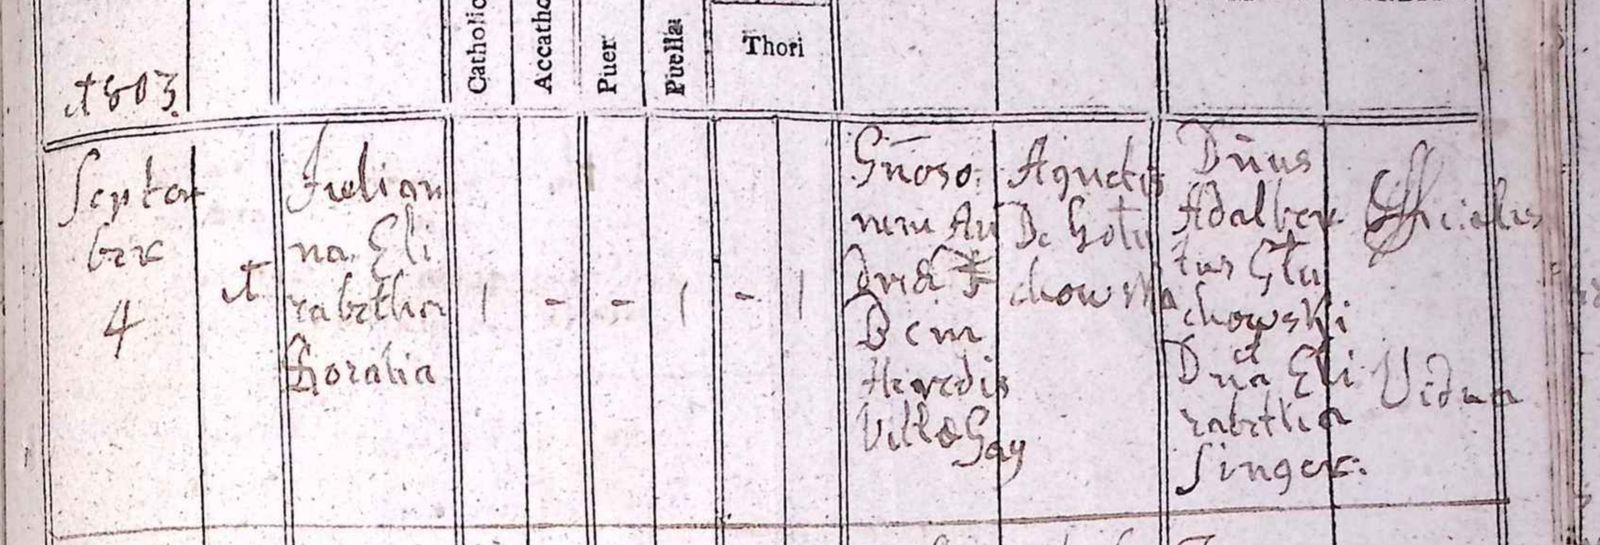 Catholic
Accatho
Puer
Puella
Thori
1803
Septem
bris
4
1
Julian
na Eli
zabetha
Rozalia
1
-
-
1
-
1
Gñoso
rum An
Bem
Heredis
Villæ Gay
Agnetis
De Gołu
chowska
Dñus
Adalber
tus Głu
chowski
Dña Eli
zabetha
Singer:
Officialis
Vidua